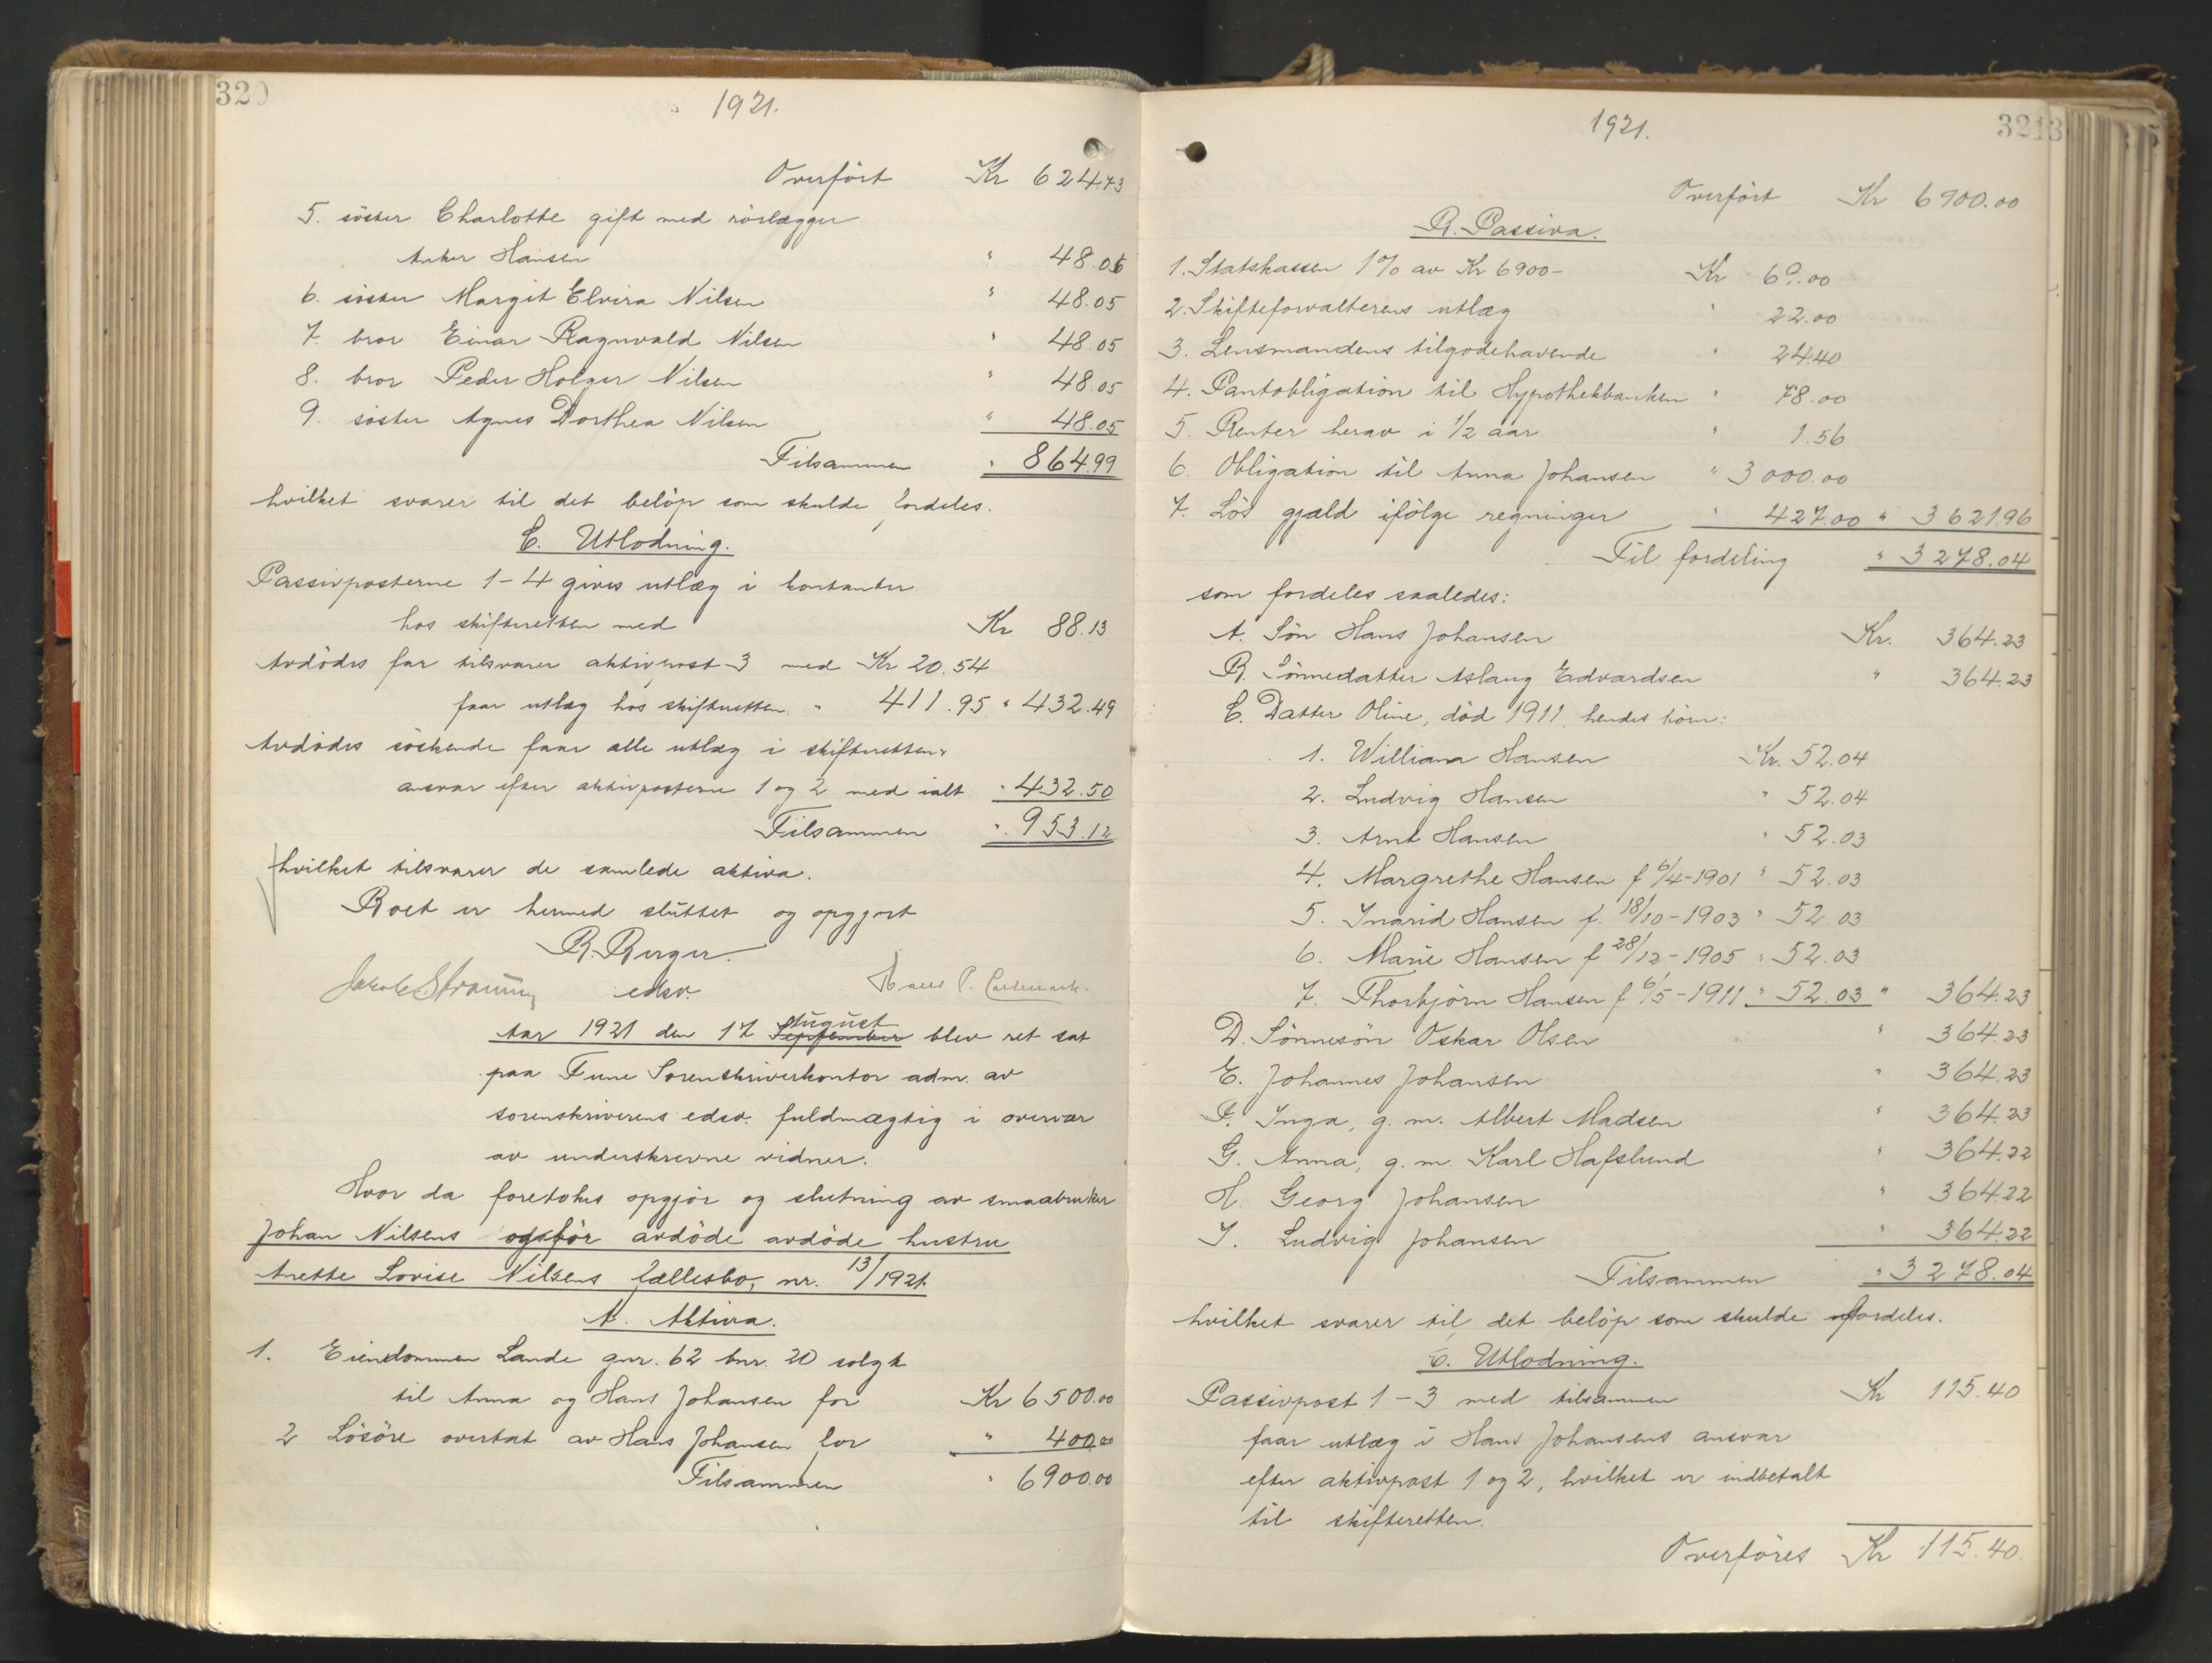 320
1921.
Overført Kr 624.73
5. søster Charlotte gift med rørlægger
Anker Hansen " 48.06
6. søster Margit Elvira Nilsen " 48.05
7. bror Einar Ragnvald Nilsen " 48.05
8. bror Peder Holger Nilsen " 48.05
9. søster Agnes Dorthea Nilsen " 48.05
Tilsammen " 864.99
hvilket svarer til det beløp som skulde fordeles.
C. Utlodning.
Passivposterne 1-4 gives utlæg i kontanter
hos skifteretten med Kr 88.13
Avdødes far tilsvarer aktivpost 3 med Kr 20.54
faar utlæg hos skifteretten " 411.95 " 432.49
Avdødes søskende faar alle utlæg i skifterettens
ansvar efter aktivposterne 1 og 2 med ialt " 432.50
Tilsammen " 953.12
hvilket tilsvarer de samlede aktiva.
Boet er hermed sluttet og opgjort
B. Berger.
edsv.
Aar 1921 den 17 September august blev ret sat
paa Tune Sorenskriverkontor adm. av
sorenskriverens edsv. fuldmægtig i overvær
av underskrevne vidner.
Hvor da foretokes opgjør og slutning av smaabruker
Johan Nilsens og før avdøde avdøde hustru
Anette Lovise Nilsens fællesbo, nr. 13/1921.
A. Aktiva.
1. Eiendommen Lande gnr. 62 bnr. 20 solgt
til Anna og Hans Johansen for Kr 6500.00
2 Løsøre overtat av Hans Johansen for " 400.00
Tilsammen " 6900.00
321
1921.
Overført Kr 6900.00
B. Passiva.
1. Statskassen 1% av Kr 6900- Kr 69.00
2. Skifteforvalterens utlæg " 22.00
3. Lensmandens tilgodehavende " 24.40
4. Pantobligation til Hypothekbanken " 78.00
5. Renter herav i 1/2 aar " 1.56
6. Obligation til Anna Johansen " 3000.00
7. Løs gjæld ifølge regninger " 427.00 " 3621.96
Til fordeling " 3278.04
som fordeles saaledes:
A. Søn Hans Johansen Kr. 364.23
B. Sønnedatter Aslaug Edvardsen " 364.23
C. Datter Oline, død 1911, hendes børn:
1. William Hansen Kr. 52.04
2. Ludvig Hansen " 52.04
3. Arnt Hansen " 52.03
4. Margrethe Hansen f 6/4-1901 " 52.03
5. Ingrid Hansen f. 18/10-1903 " 52.03
6. Marie Hansen f 28/12-1905 " 52.03
7. Thorbjørn Hansen f 6/5-1911 " 52.03 " 364.23
D. Sønnesøn Oskar Olsen " 364.23
E. Johannes Johansen " 364.23
F. Inga, g. m. Albert Madsen " 364.23
G. Anna, g. m. Karl Hafslund " 364.22
H. Georg Johansen " 364.22
I. Ludvig Johansen " 364.22
Tilsammen " 3278.04
hvilket svarer til det beløp som skulde fordeles.
C. Utlodning.
Passivpost 1-3 med tilsammen Kr 115.40
faar utlæg i Hans Johansens ansvar
efter aktivpost 1 og 2, hvilket er indbetalt
til skifteretten.
Overføres Kr 115.40.